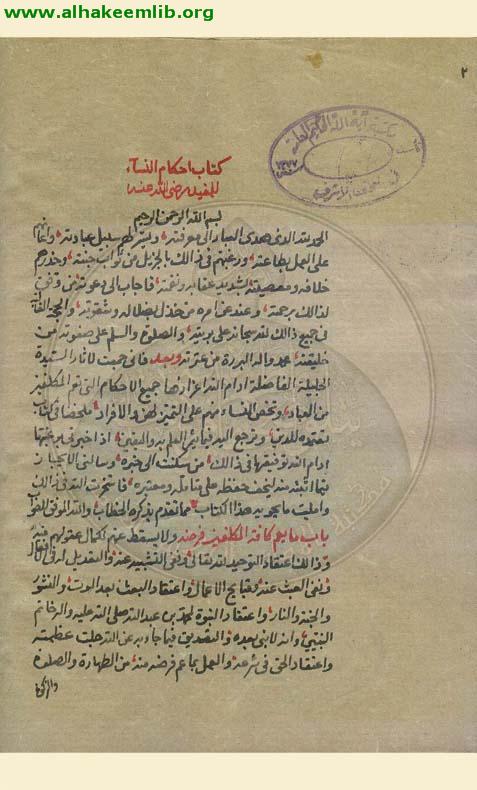 www.alhakeemlib.org
٢
كتاب احكام النساء
للمفيد رضى الله عنه
بسم الله الرحمن الرحيم
الحمد لله الذى هدى العباد الى معرفته ويسر لهم سبيل عبادته واعانهم
على العمل بطاعته ورغبهم فى ذالك بالجزيل من ثواب جنته وحذرهم
خلافه ومعصيته لشديد عقابه ونقمته فاجاب الى دعوته من وفق
لذالك برحمته وعند عن امره من خذل بضلاله وشقوته والحجة
فى جميع ذالك لله سبحانه على بريته والصلوة والسلم على صفوته من
خليقته محمد واله البررة من عترته وبعد فانى
الجليلة الفاضلة ادام الله اعزازها جميع الاحكام التى تعم المكلفين
من العباد وتختص النساء منهم على التميز لهن والافراد ملخصا فى كتاب
يعتمد للدين ويرجع اليه فيما يثمر العلم به واليقين اذ اخبرنى برغبتها
ادام الله توفيقها فى ذالك من سكنت الى خبره وسالنى الايجاز
فيما اثبته منه ليخف حفظه على متأمله ومعتبره فاستخرت الله فى ذالك
وامليت ما يحويه هذا الكتاب مما تقدم بذكره الخطاب والله الموفق للصواب
باب ما يعم كافة المكلفين فرضه ولا يسقط عنهم لكمال عقولهم
وذالك اعتقاد التوحيد لله تعالى ونفى التشبيه عنه والتعديل له فى الافعال
ونفى العبث عنه وقبايح الاعمال واعتقاد البعث بعد الموت والنشور
والجنة والنار واعتقاد النبوة لمحمد بن عبد الله صلى الله عليه واله خاتم
النبيين وانه لا نبى بعده والتصديق فيما جاء به عن الله جلت عظمته
واعتقاد الحق فى شرعه والعمل بما عم فرضه منه من الطهارة والصلوة
والزكوة